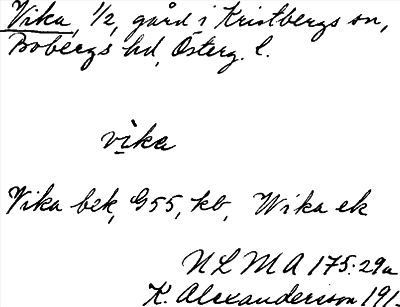 Vika, 1/2, gård i Kristbergs sn,
Bobergs hd, Österg. l.
vi̱ka
Vika bek, G55, kb, Wika ek
NLMA 175:29a
K. Alexandersson 191